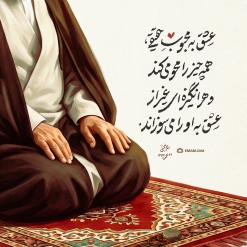 عشق به محبوب حقیقی،
همه چیز را محو می‌کند
و هر انگیزه‌ای غیر از
عشق به او را می‌سوزاند.
EMAM.COM